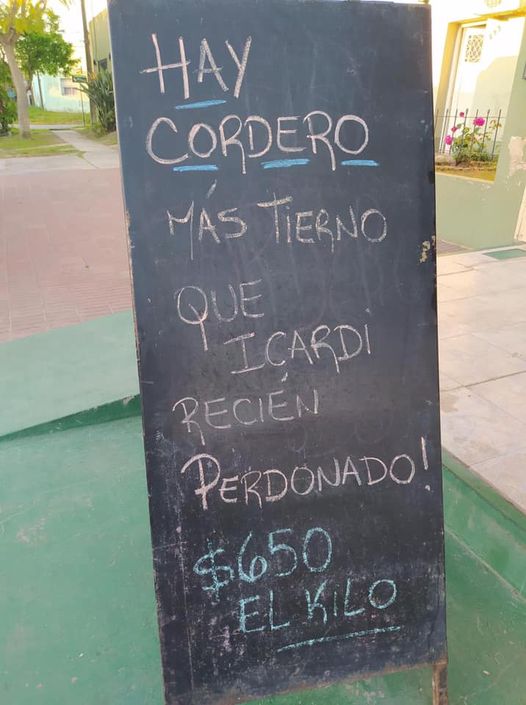 HAY
CORDERO
MÁS TIERNO
QUE
ICARDI
RECIÉN
PERDONADO!
$650
EL KILO